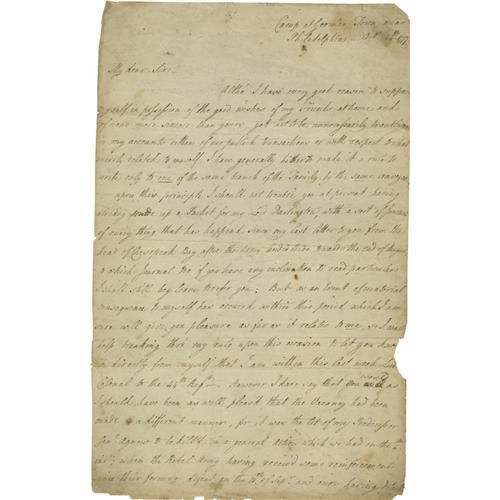 Camp at German Town near
Philadelphia Oct.
My dear Sir,
Altho' I have every good reason to suppose
myself in possession of the good wishes of my Friends at home and
of none more sincere than yours, yet not to be unnecessarily troublesome
in my accounts either of our publick transactions or with respect to what
merely related to myself, I have generally hitherto made it a rule to
write only to one of the same branch of the Family by the same conveyance
upon these principles I should not trouble you at present having
already made up a Packet for my Lord Darlington, with a sort of Journal
of every thing that has happen'd since my last letter to you from the
head of Chesapeak Bay after the Army landed there towards the end of August
to which Journal too if you have any inclination to read particulars
I shall still beg leave to refer you; But as an Event of material
consequence to myself has occured within this period, which I am
sure will give you pleasure as far as it relates to me, so I can't
help breaking thro' my rule upon this occasion to let you know
directly from myself that I am within this last week Lieut
Colonel to the 44th Regt. However I dare say that you would as
I should have been as well pleased that the Vacancy had been
made in a different manner, for it was the lot of my Predecessor
Genl. Agnew to be killed in a general action which we had on the 4th
inst; when the Rebel Army having received some reinforcements
since their former defeat on the 11th of Sept. and ours having